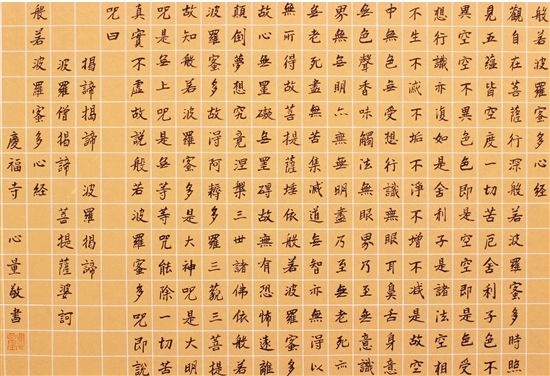 般若波羅蜜多心經
觀自在菩薩行深般若波羅蜜多時照
見五蘊皆空度一切苦厄舍利子色不
異空空不異色色即是空空即是色受
想行識亦復如是舍利子是諸法空相
不生不滅不垢不淨不增不減是故空
中無色無受想行識無眼耳鼻舌身意
無色聲香味觸法無眼界乃至無意識
界無無明亦無無明盡乃至無老死亦
無老死盡無苦集滅道無智亦無得以
無所得故菩提薩埵依般若波羅蜜多
故心無罣礙無罣礙故無有恐怖遠離
顛倒夢想究竟涅槃三世諸佛依般若
波羅蜜多故得阿耨多羅三藐三菩提
故知般若波羅蜜多是大神咒是大明
咒是無上咒是無等等咒能除一切苦
真實不虛故說般若波羅蜜多咒即說
咒曰
揭諦揭諦 波羅揭諦
波羅僧揭諦 菩提薩婆訶
般若波羅蜜多心経
慶福寺 心量敬書